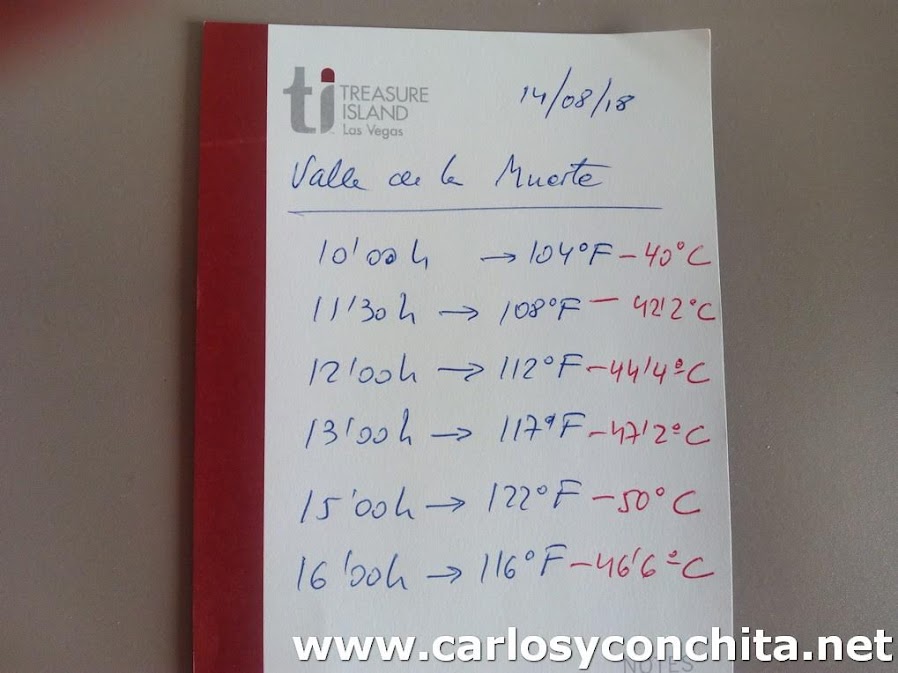 ti TREASURE
ISLAND
Las Vegas
14/08/18
Valle de la Muerte
10'00h → 104°F - 40°C
11'30h → 108°F - 42'2°C
12'00h → 112°F - 44'4ºC
13'00h → 117°F - 47'2°C
15'00h → 122°F - 50°C
16'00h → 116°F - 46'6ºC
www.carlosyconchita.net
NOTES